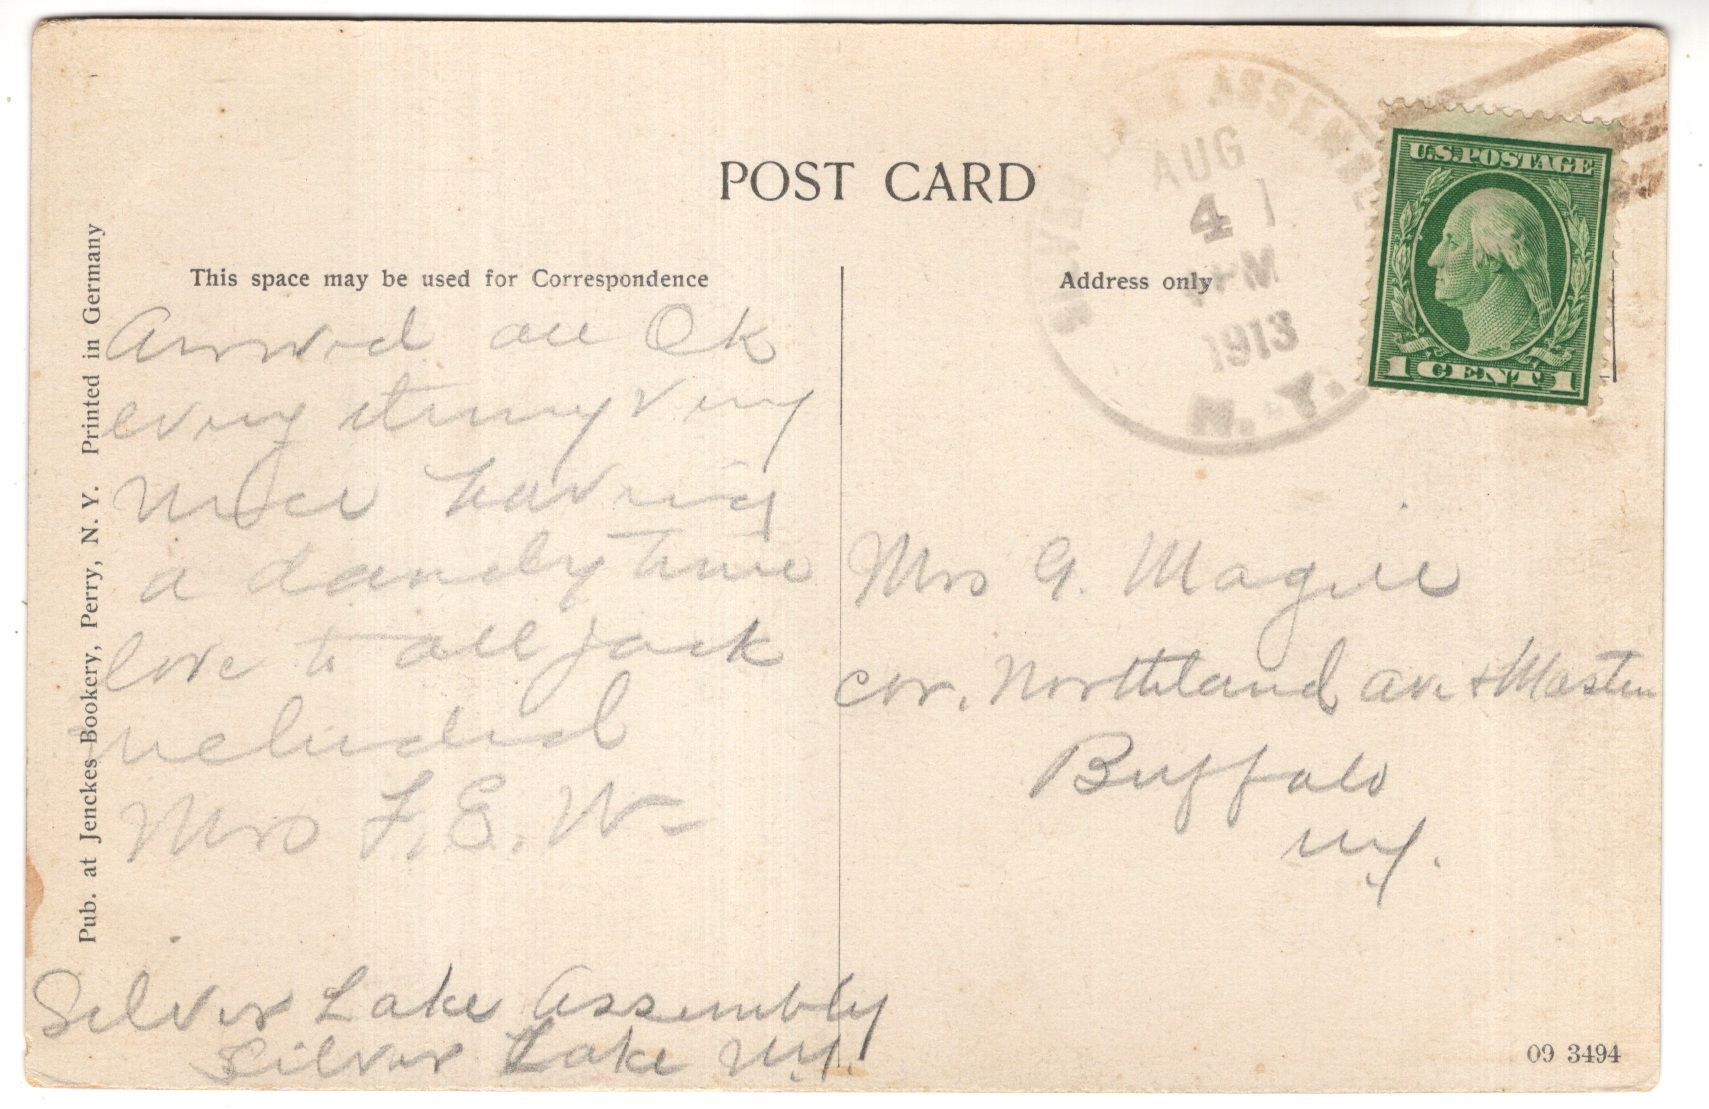 POST CARD
This space may be used for Correspondence
Address only
Pub. at Jenckes Bookery, Perry, N. Y. Printed in Germany
SILVER LAKE ASSEMBLY
AUG
4
PM
1913
N. Y.
U.S. POSTAGE
1 CENT 1
Arrived all Ok
every thing very
nice having
a dandy time
love to all jack
included
Mrs F. E. W-
Silver Lake Assembly
Silver Lake N.Y.
Mrs G. Magill
cor. Northland ave & Masten
Buffalo
N.Y.
09 3494